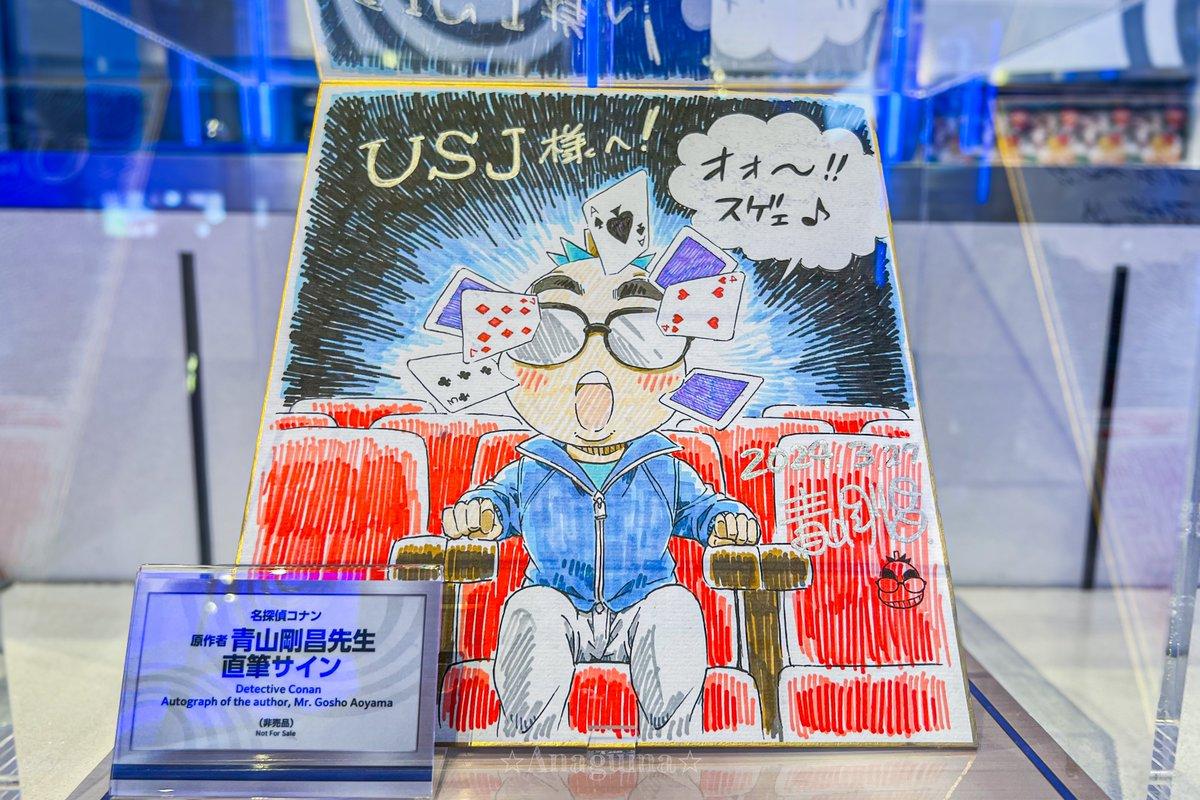 USJ 様へ!
オォ〜!!
スゲェ♪
A
A
7
7
4
4
3
2024.3.27
青山剛昌
名探偵コナン
原作者 青山剛昌先生
直筆サイン
Detective Conan
Autograph of the author, Mr. Gosho Aoyama
(非売品)
Not For Sale
☆Anaguina☆